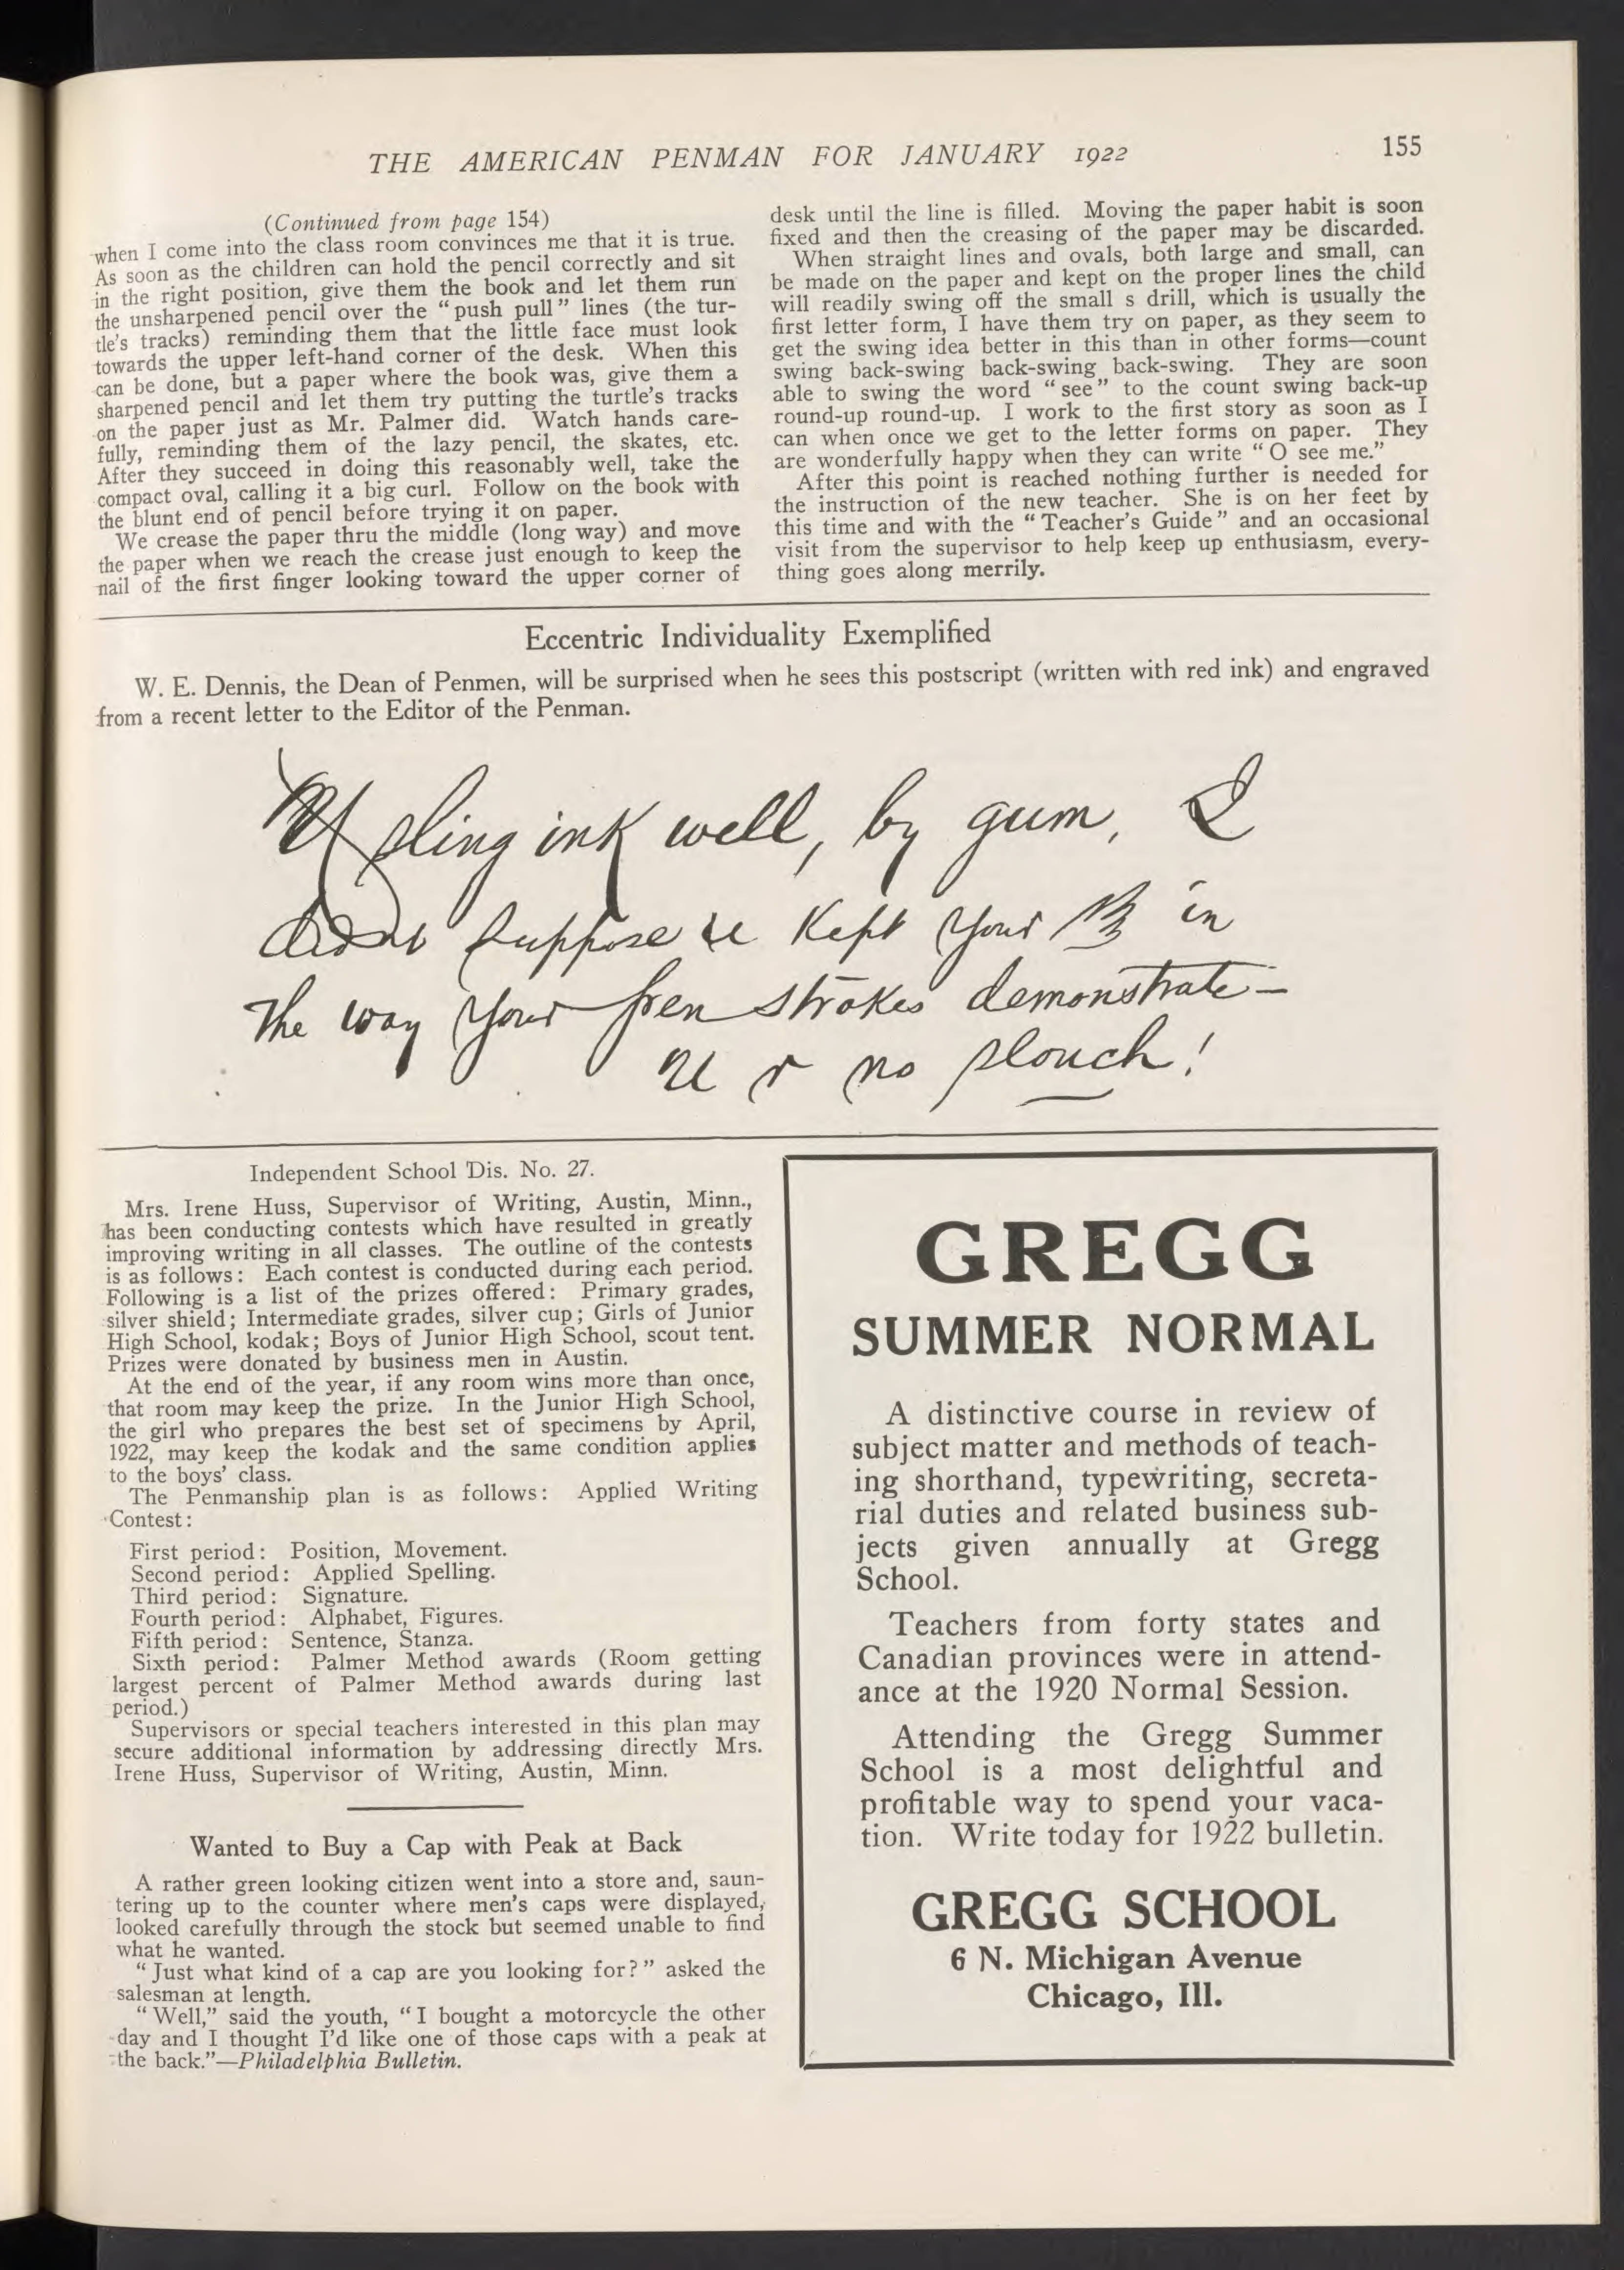 THE AMERICAN PENMAN FOR JANUARY 1922
155
(Continued from page 154)
when I come into the class room convinces me that it is true.
As soon as the children can hold the pencil correctly and sit
in the right position, give them the book and let them run
the unsharpened pencil over the “push pull” lines (the tur-
tle's tracks) reminding them that the little face must look
towards the upper left-hand corner of the desk. When this
can be done, but a paper where the book was, give them a
sharpened pencil and let them try putting the turtle's tracks
on the paper just as Mr. Palmer did. Watch hands care-
fully, reminding them of the lazy pencil, the skates, etc.
After they succeed in doing this reasonably well, take the
compact oval, calling it a big curl. Follow on the book with
the blunt end of pencil before trying it on paper.
We crease the paper thru the middle (long way) and move
the paper when we reach the crease just enough to keep the
nail of the first finger looking toward the upper corner of
desk until the line is filled. Moving the paper habit is soon
fixed and then the creasing of the paper may be discarded.
When straight lines and ovals, both large and small, can
be made on the paper and kept on the proper lines the child
will readily swing off the small s drill, which is usually the
first letter form, I have them try on paper, as they seem to
get the swing idea better in this than in other forms—count
swing back-swing back-swing back-swing. They are soon
able to swing the word “see” to the count swing back-up
round-up round-up. I work to the first story as soon as I
can when once we get to the letter forms on paper. They
are wonderfully happy when they can write “O see me.”
After this point is reached nothing further is needed for
the instruction of the new teacher. She is on her feet by
this time and with the “Teacher's Guide” and an occasional
visit from the supervisor to help keep up enthusiasm, every-
thing goes along merrily.
Eccentric Individuality Exemplified
W. E. Dennis, the Dean of Penmen, will be surprised when he sees this postscript (written with red ink) and engraved
from a recent letter to the Editor of the Penman.
U sling ink well, by gum, I
didnt suppose u kept your in
the way your pen strokes demonstrate—
U r no slouch!
Independent School Dis. No. 27.
Mrs. Irene Huss, Supervisor of Writing, Austin, Minn.,
has been conducting contests which have resulted in greatly
improving writing in all classes. The outline of the contests
is as follows: Each contest is conducted during each period.
Following is a list of the prizes offered: Primary grades,
silver shield; Intermediate grades, silver cup; Girls of Junior
High School, kodak; Boys of Junior High School, scout tent.
Prizes were donated by business men in Austin.
At the end of the year, if any room wins more than once,
that room may keep the prize. In the Junior High School,
the girl who prepares the best set of specimens by April,
1922, may keep the kodak and the same condition applies
to the boys' class.
The Penmanship plan is as follows: Applied Writing
Contest:
First period: Position, Movement.
Second period: Applied Spelling.
Third period: Signature.
Fourth period: Alphabet, Figures.
Fifth period: Sentence, Stanza.
Sixth period: Palmer Method awards (Room getting
largest percent of Palmer Method awards during last
period.)
Supervisors or special teachers interested in this plan may
secure additional information by addressing directly Mrs.
Irene Huss, Supervisor of Writing, Austin, Minn.
Wanted to Buy a Cap with Peak at Back
A rather green looking citizen went into a store and, saun-
tering up to the counter where men's caps were displayed,
looked carefully through the stock but seemed unable to find
what he wanted.
“Just what kind of a cap are you looking for?” asked the
salesman at length.
“Well,” said the youth, “I bought a motorcycle the other
day and I thought I'd like one of those caps with a peak at
the back.”—Philadelphia Bulletin.
GREGG
SUMMER NORMAL
A distinctive course in review of
subject matter and methods of teach-
ing shorthand, typewriting, secreta-
rial duties and related business sub-
jects given annually at Gregg
School.
Teachers from forty states and
Canadian provinces were in attend-
ance at the 1920 Normal Session.
Attending the Gregg Summer
School is a most delightful and
profitable way to spend your vaca-
tion. Write today for 1922 bulletin.
GREGG SCHOOL
6 N. Michigan Avenue
Chicago, Ill.